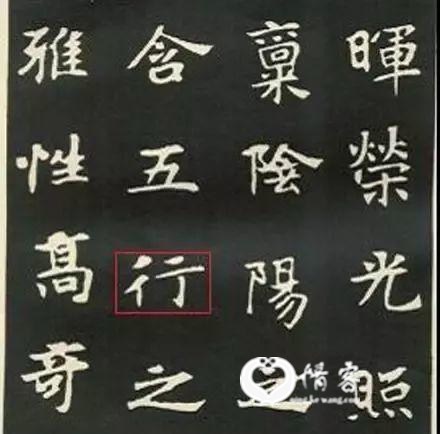 暉榮光照
稟陰陽之
含五行之
雅性髙奇
情客